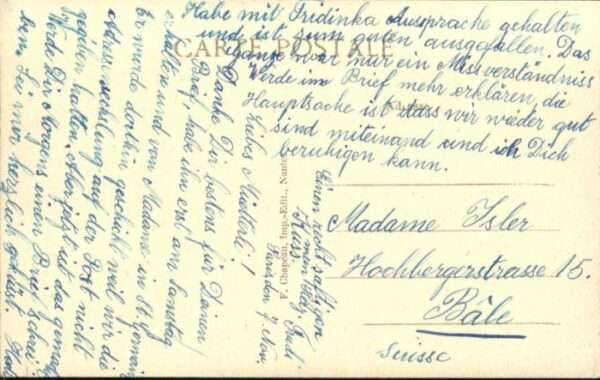 CARTE POSTALE
Liebes Mütterli!
Danke Dir bestens für Deinen
Brief, habe ihn erst am Samstag
erhalten und von Madame in St.
Er wurde dorthin geschickt weil wir die
Adresswechslung auf der Post nicht
gegeben hatten. Aber jetzt ist das gemacht
Werde Dir Morgens einen Brief schrei
ben. Sei mir herzlich geküsst.
Habe mit Fridinka Aussprache gehalten
und ist zum guten ausgefallen. Das
ganze war nur ein Missverständniss
Werde im Brief mehr erklären, die
Hauptsache ist dass wir wieder gut
sind miteinand und ich Dich
beruhigen kann.
Einen recht saftigen
Kuss
F. Chapeau, Imp.-Edit., Nantes
Madame Isler
Hochbergerstrasse 15.
Bâle
Suisse